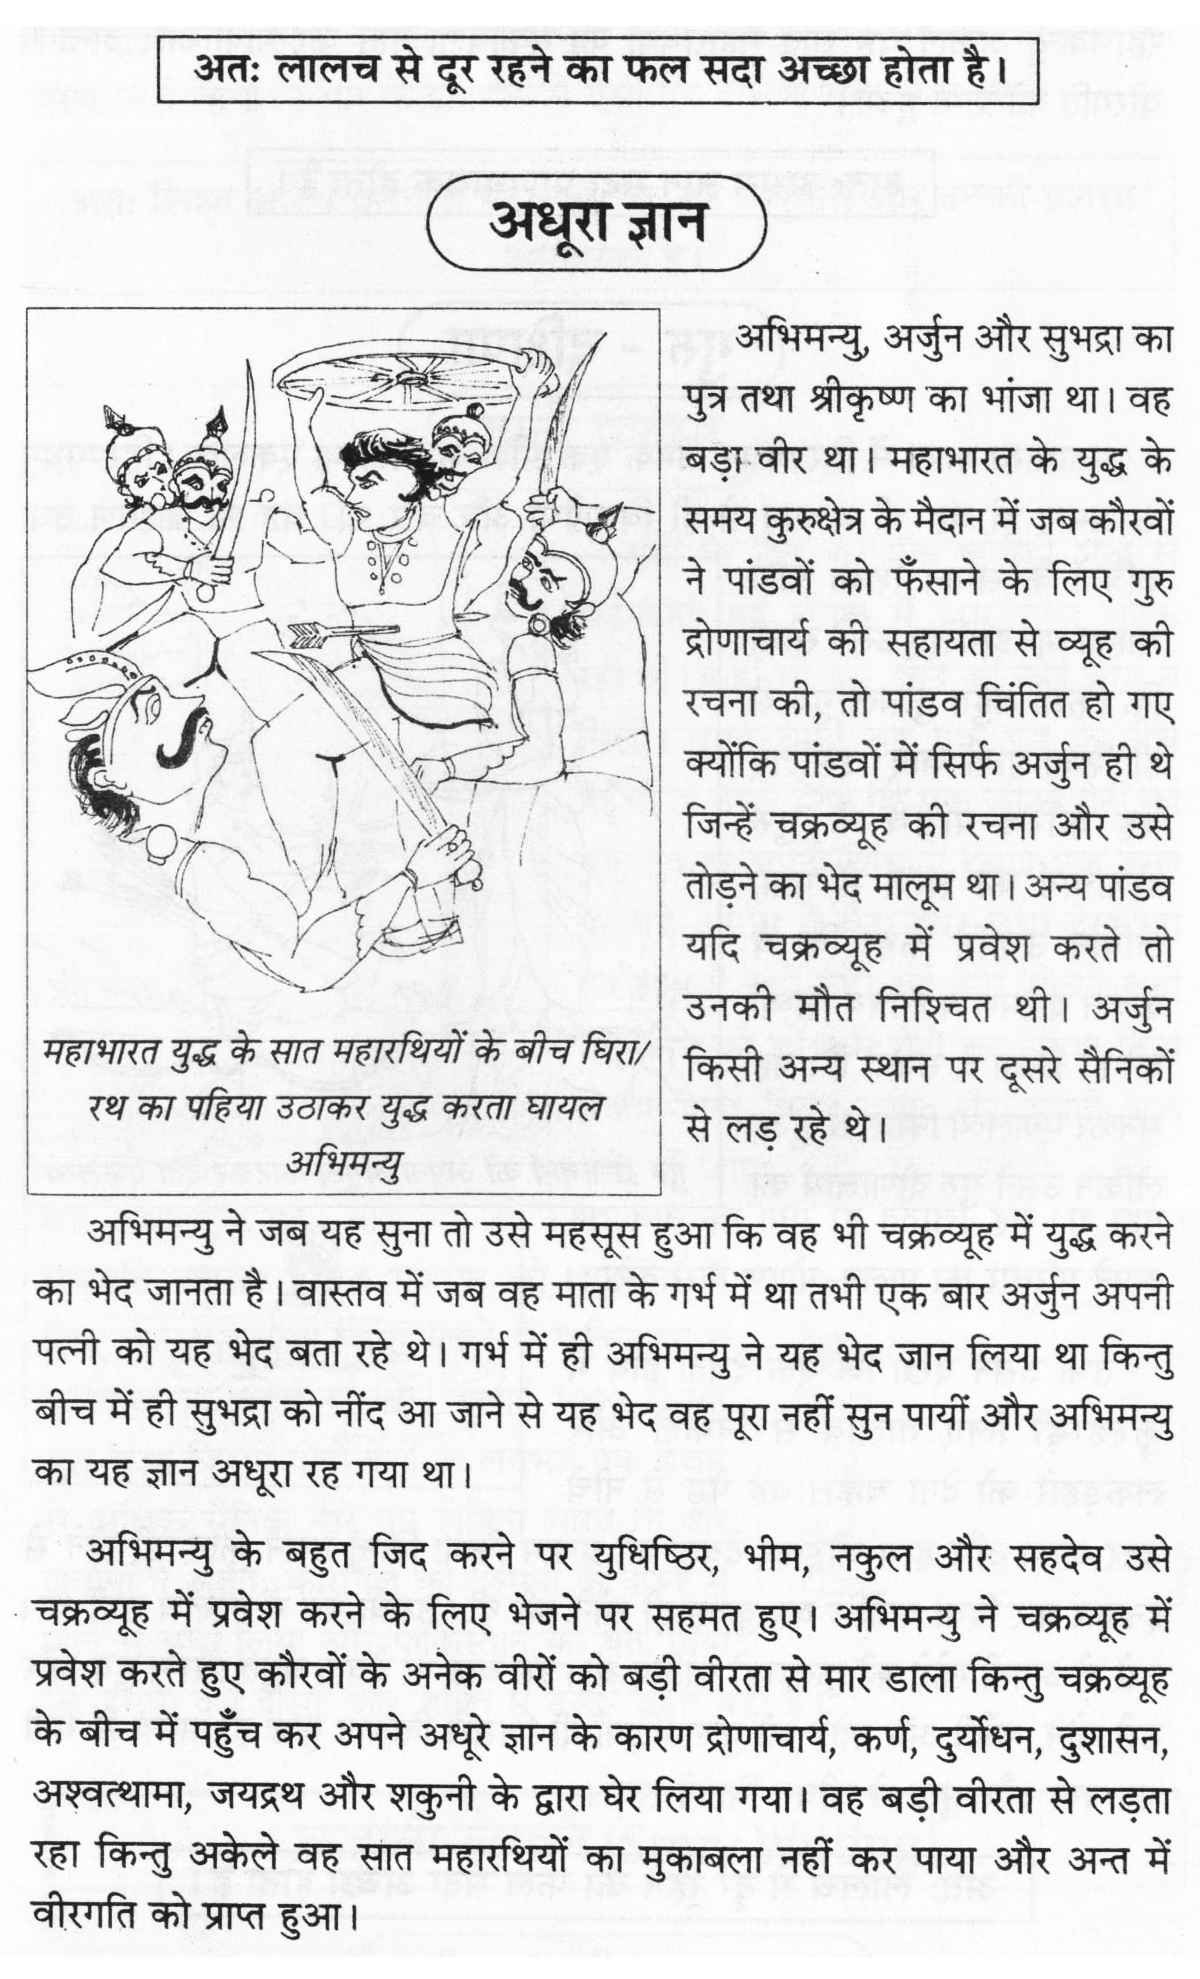 अतः लालच से दूर रहने का फल सदा अच्छा होता है।
अधूरा ज्ञान
अभिमन्यु, अर्जुन और सुभद्रा का
पुत्र तथा श्रीकृष्ण का भांजा था। वह
बड़ा वीर था। महाभारत के युद्ध के
समय कुरुक्षेत्र के मैदान में जब कौरवों
ने पांडवों को फँसाने के लिए गुरु
द्रोणाचार्य की सहायता से व्यूह की
रचना की, तो पांडव चिंतित हो गए
क्योंकि पांडवों में सिर्फ अर्जुन ही थे
जिन्हें चक्रव्यूह की रचना और उसे
तोड़ने का भेद मालूम था। अन्य पांडव
यदि चक्रव्यूह में प्रवेश करते तो
उनकी मौत निश्चित थी। अर्जुन
किसी अन्य स्थान पर दूसरे सैनिकों
से लड़ रहे थे।
महाभारत युद्ध के सात महारथियों के बीच घिरा/
रथ का पहिया उठाकर युद्ध करता घायल
अभिमन्यु
अभिमन्यु ने जब यह सुना तो उसे महसूस हुआ कि वह भी चक्रव्यूह में युद्ध करने
का भेद जानता है। वास्तव में जब वह माता के गर्भ में था तभी एक बार अर्जुन अपनी
पत्नी को यह भेद बता रहे थे। गर्भ में ही अभिमन्यु ने यह भेद जान लिया था किन्तु
बीच में ही सुभद्रा को नींद आ जाने से यह भेद वह पूरा नहीं सुन पायीं और अभिमन्यु
का यह ज्ञान अधूरा रह गया था।
अभिमन्यु के बहुत जिद करने पर युधिष्ठिर, भीम, नकुल और सहदेव उसे
चक्रव्यूह में प्रवेश करने के लिए भेजने पर सहमत हुए। अभिमन्यु ने चक्रव्यूह में
प्रवेश करते हुए कौरवों के अनेक वीरों को बड़ी वीरता से मार डाला किन्तु चक्रव्यूह
के बीच में पहुँच कर अपने अधूरे ज्ञान के कारण द्रोणाचार्य, कर्ण, दुर्योधन, दुशासन,
अश्वत्थामा, जयद्रथ और शकुनी के द्वारा घेर लिया गया। वह बड़ी वीरता से लड़ता
रहा किन्तु अकेले वह सात महारथियों का मुकाबला नहीं कर पाया और अन्त में
वीरगति को प्राप्त हुआ।